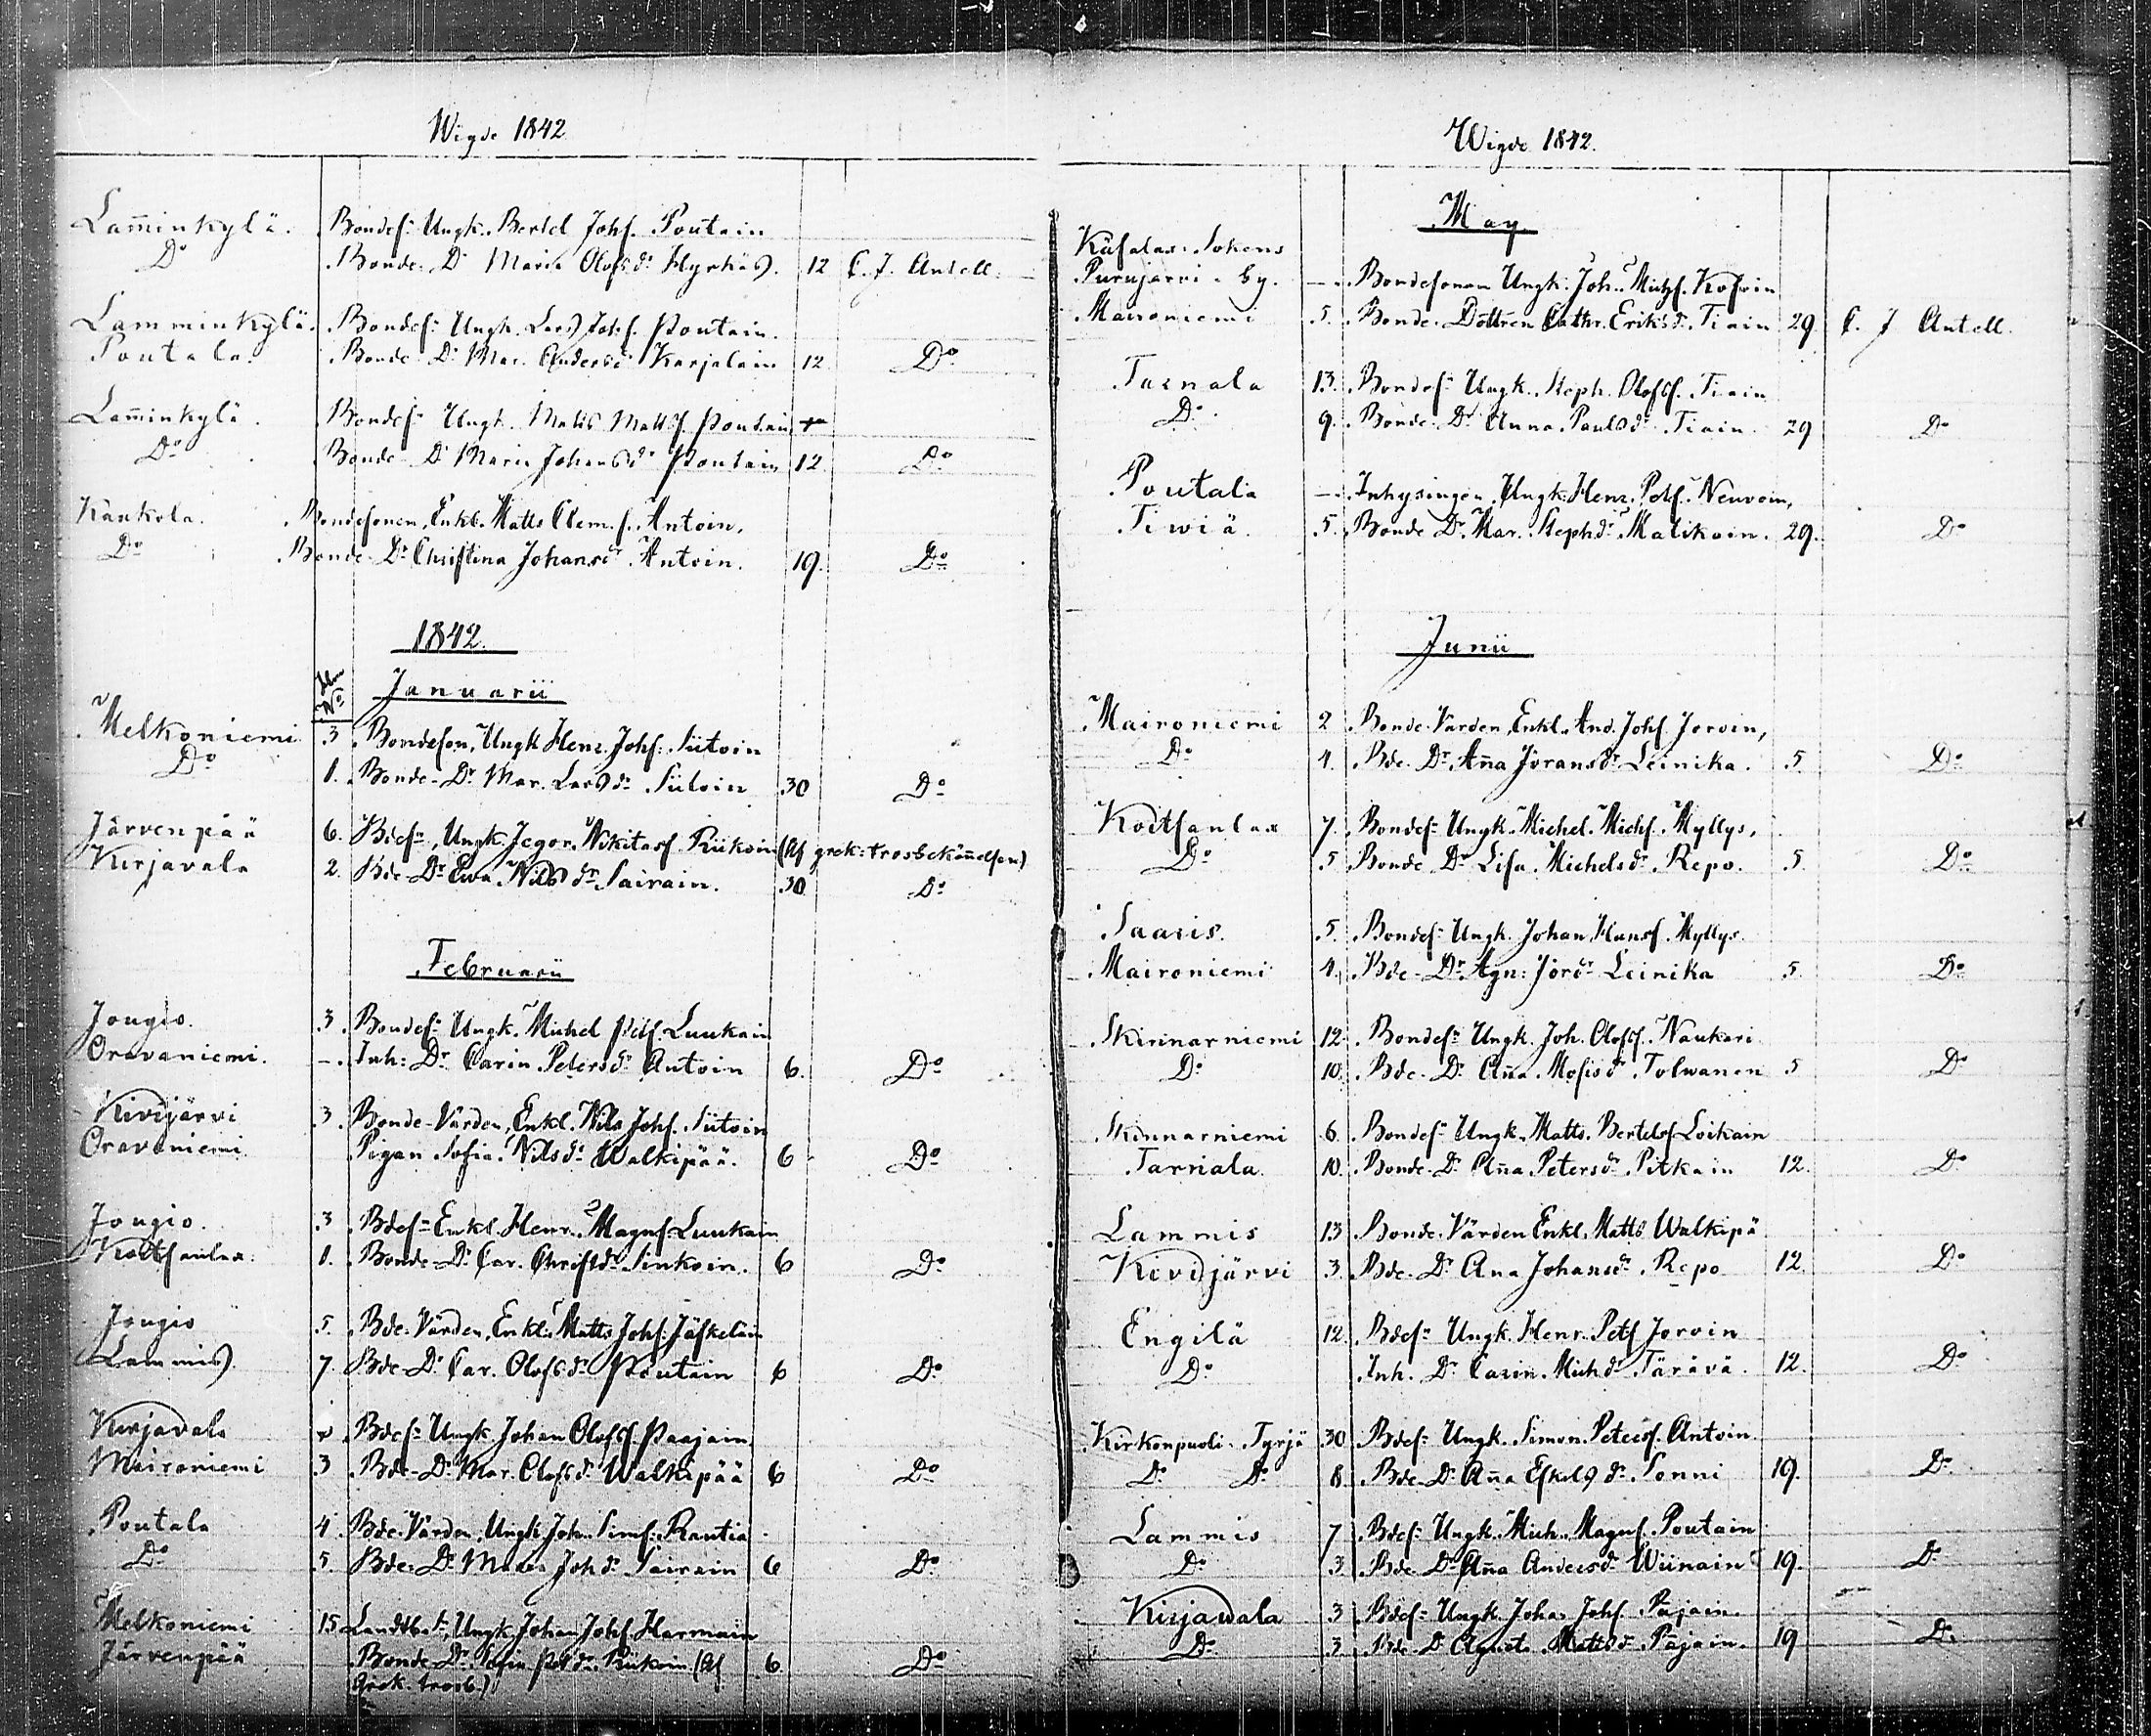 Wigde 1842
Lam̄inkylä. Bondes: Ungk. Bertel Johs. Poutain
Do Bonde Dr Maria Olofsdr Hyrkäs. 12 C. J. Antell.
Lamminkylä. Bondes: Ungk. Lars Johs. Poutain.
Poutala. Bonde Dr Mar. Andersdr Karjalain 12 Do
Lam̄inkylä. Bondes: Ungk. Matts Mattss. Poutain
Do Bonde Dr Maria Johansdr Poutain 12. Do
Kankola. Bondesonen, Enkl. Matts Clem.s. Antoin,
Do Bonde-Dr Christina Johansdr Antoin. 19. Do
1842.
No
Januarii
Melkoniemi 3 Bondeson, Ungk Henr. Johs: Siitoin
Do 1. Bonde-Dr Mar. Larsdr Siitoin 30 Do
Järvenpää 6. Bdes:, Ungk. Jegor. Nikitass. Riikoin (Af grek: trosbekännelsen)
Kirjavala 2. Bde-Dr Ewa Nilsdr Sairain. 30 Do
Februarii
Jougio. 3. Bondes: Ungk. Michel Pets. Luukain
Oravaniemi. – Inh: Dr Carin Petersdr Antoin 6. Do
Kivijärvi 3. Bonde-Värden, Enkl. Nils Johs. Siitoin
Oravaniemi. Pigan Sofia Nilsdr Walkipää. 6 Do
Jougio. 3 Bdes: Enkl. Henr. Magns. Luukain
Koitsanlax. 1. Bonde-Dr Car. Christdr Sinkoin. 6 Do
Jougio 5. Bde-Värden, Enkl. Matts Johs. Jäskeläin
Lammis. 7. Bde-Dr Car. Olofsdr Poutain 6 Do
Kirjavala Bdes: Ungk. Johan Olofss. Paajain.
Maironiemi 3 Bde-Dr Mar. Olofsdr Walkipää 6 Do
Poutala 4. Bde-Värden, Ungk Joh. Sims. Rautia
Do 5. Bde-Dr Maria Johdr Sairain 6 Do
Melkoniemi 15 Landtb., Ungk. Johan Johs. Harmain
Järvenpää Bonde-Dr Sofia Petdr Riikoin (Af 6. Do
Grek. trosb.)
Wigde 1842.
May
Käsalax. Sokens
Purujärvi. by. – Bondesonen Ungk: Joh. Michs. Kosoin
Maironiemi 5. Bonde-Dottren Cathr. Eriksdr Tiain 29 C. J Antell.
Tarnala 13. Bondes: Ungk. Steph. Olofss. Tiain
Do 9. Bonde-Dr Anna Paulsdr Tiain 29 Do
Poutala – Inhysingen, Ungk. Henr. Pets. Neuvoin,
Tiwiä. 5. Bonde Dr Mar. Stephdr Malikain. 29. Do
Junii
Maironiemi 2 Bonde-Värden, Enkl. And. Johs. Joroin,
Do 4. Bde-Dr An̄a Göransdr Leinika. 5. Do
Koitsanlax 7. Bondes: Ungk. Michel. Michs. Myllys.
Do 5 Bonde Dr Lisa Michelsdr Repo. 5. Do
Saaris. 5. Bondes: Ungk. Johan Hanss. Myllys.
Maironiemi 4. Bde-Dr Agn: Jördr Leinika 5. Do
Skinnarniemi 12. Bondes: Ungk. Joh. Olofss. Naukari
Do 10. Bde-Dr An̄a Mosisdr Tolwanen 5 Do
Skinnarniemi 6. Bondes: Ungk. Matts. Bertelss Loikain
Tarnala. 10. Bonde-Dr An̄a Petersdr Pitkäin 12. Do
Lammis 13 Bonde-Värden Enkl. Matts Walkipä
Kivijärvi 3. Bde-Dr Ana Johansdr Repo 12. Do
Engilä 12. Bdes: Ungk. Henr. Pets Joroin
Do Inh. Dr Carin. Michdr Tärävä. 12. Do
Kirkonpuoli. Tyrjä 30 Bdes: Ungk. Simon. Peterss. Antoin.
Do Do 8. Bde-Dr An̄a Eskelsdr Sonni 19. Do
Lammis 7 Bdes: Ungk. Mich. Magns. Poutain
Do 3. Bde-Dr An̄a Andersdr Wiinain 19. Do
Kirjawala 3 Bdes: Ungk. Johan Johs. Päjain.
Do 3. Bde-Dr Agneta Mattsdr Päjain. 19 Do